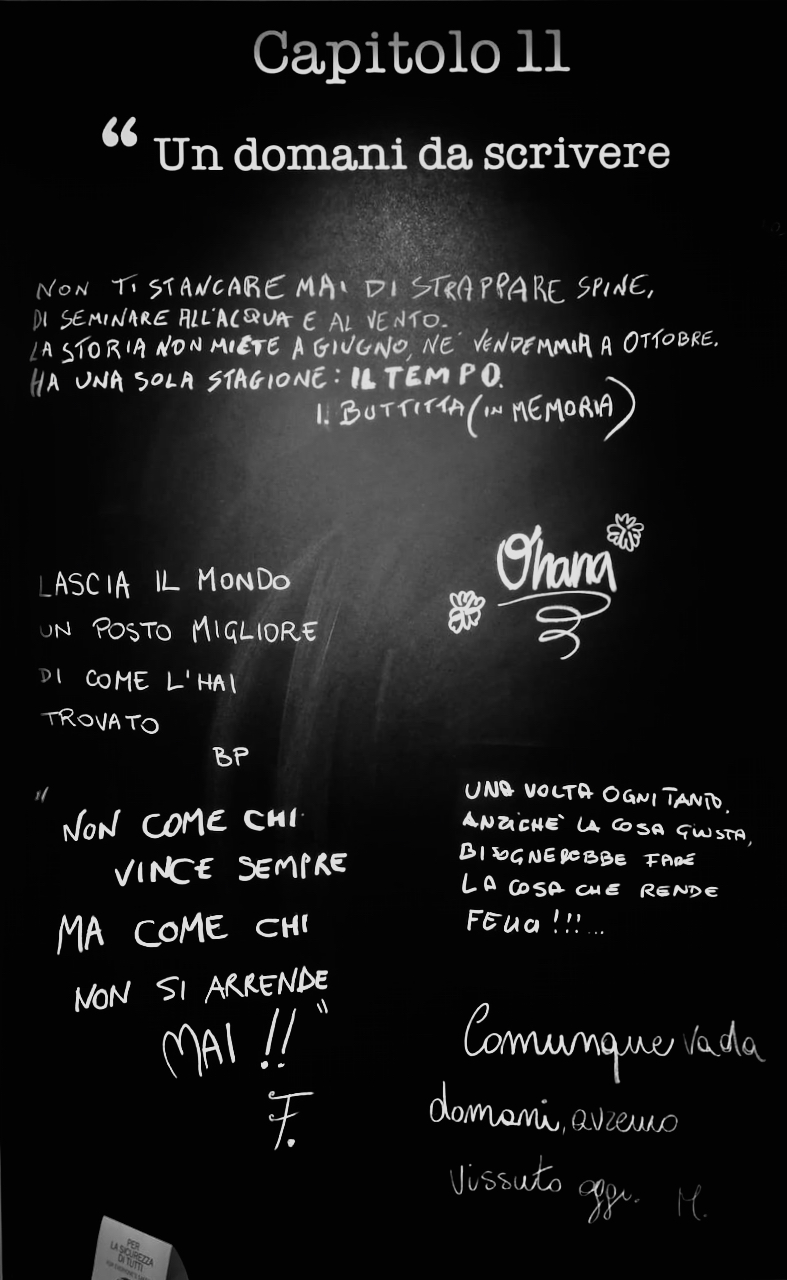 Capitolo 11
“ Un domani da scrivere
NON TI STANCARE MAI DI STRAPPARE SPINE,
DI SEMINARE ALL'ACQUA E AL VENTO.
LA STORIA NON MIETE A GIUGNO, NE' VENDEMMIA A OTTOBRE.
HA UNA SOLA STAGIONE: IL TEMPO.
I. BUTTITTA (IN MEMORIA)
Ohana
LASCIA IL MONDO
UN POSTO MIGLIORE
DI COME L'HAI
TROVATO
BP
"NON COME CHI
VINCE SEMPRE
MA COME CHI
NON SI ARRENDE
MAI !!"
F.
UNA VOLTA OGNI TANTO,
ANZICHÈ LA COSA GIUSTA,
BISOGNEREBBE FARE
LA COSA CHE RENDE
FELICI !!!...
Comunque vada
domani, avremo
vissuto oggi. M.
PER
LA SICUREZZA
DI TUTTI